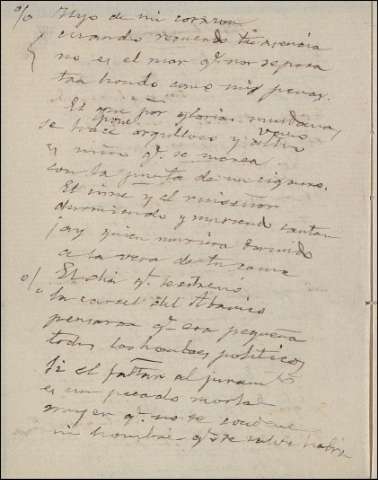 % Hijo de mi corazon
cuando recuerdo tu ausencia
no es el mar q.e nos separa
tan hondo como mis penas.
El que por glorias mundanas
se hace orgulloso y altivo
pone vano
es niño q.e se marea
con la punta de un cigarro.
El cisne y el ruiseñor
durmiendo y muriendo cantan
¡ay quien muriera dormido
a la vera de tu cama
% El dia q.e se estreno
la carcel del Abanico
pensaron q.e era pequeña
todos los hombres politicos
Si el faltar al juram.to
es un pecado mortal
muger q.e no se condene
ni hombre q.e se salve habra